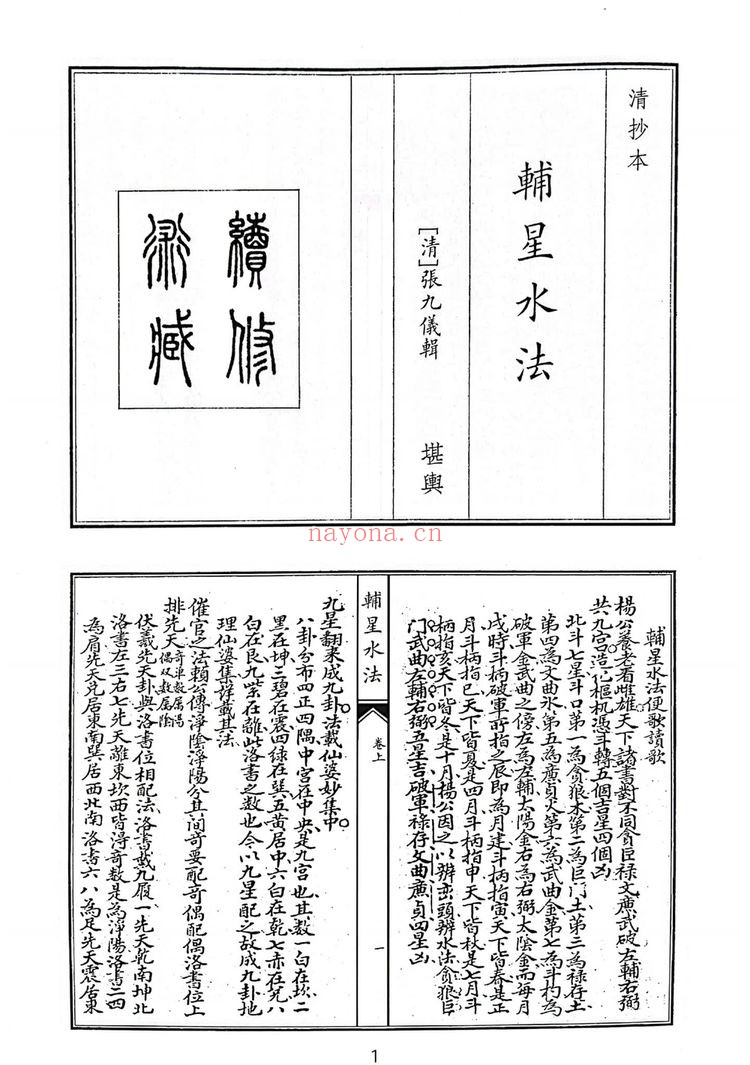 清抄本
輔星水法
[清]張九儀輯 堪輿
續修
術藏
nayona.cn
輔星水法便歌讀歌
楊公養老看雌雄天下諸書對不同貪巨祿文廉武破左輔右弼
共九宮造化樞机憑斗轉五個吉星四個凶
北斗七星斗口第一為貪狼木第二為巨門土第三為祿存土
第四為文曲水第五為廉貞火第六為武曲金第七為斗杓為
破軍金武曲之傍左為左輔太陽金右為右弼太陰金而每月
戌時斗柄破軍所指之辰即為月建斗柄指寅天下皆春是正
月斗柄指巳天下皆夏是四月斗柄指申天下皆秋是七月斗
柄指亥天下皆冬是十月楊公因之以辨巒頭辨水法貪狼巨
门武曲左輔右弼五星吉破軍祿存文曲廉貞四星凶
輔星水法
卷上
一
九星翻來成九卦法載仙婆妙集中
八卦分布四正四隅中宮在中央是九宮也其數一白在坎二
黑在坤三碧在震四綠在巽五黃居中六白在乾七赤在兌八
白在艮九紫在離此洛書之數也今以九星配之故成九卦地
理仙婆集詳載其法
催官之法賴公傳淨陰淨陽分其間奇要配奇偶配偶洛書位上
排先天奇單數屬陽偶双數屬陰
伏羲先天卦與洛書位相配法洛書戴九履一先天乾南坤北
洛書左三右七先天離東坎西皆得奇數是為淨陽洛書二四
為肩先天兌居東南巽居西北南洛書六八為足先天震居東
1